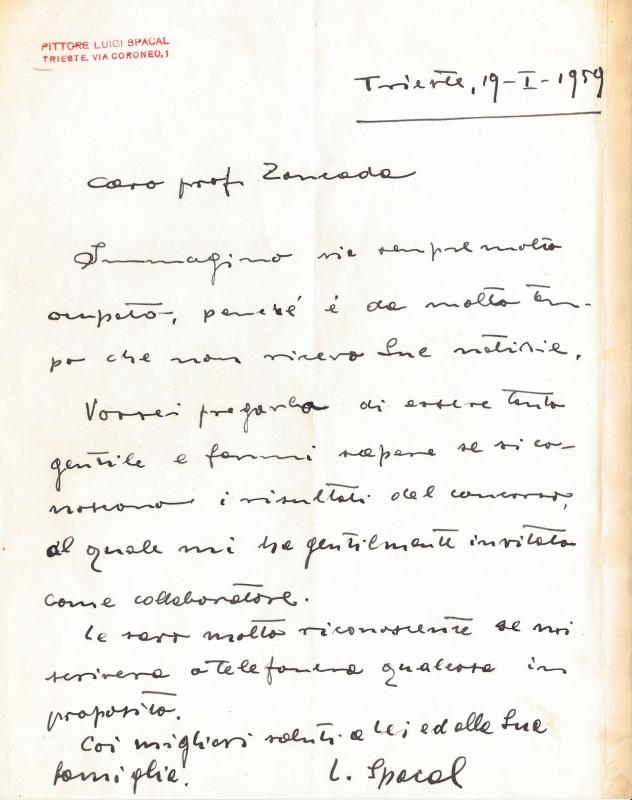 PITTORE LUIGI SPACAL
TRIESTE. VIA CORONEO, 1
Trieste, 19-I-1959
Caro prof. Zoncada
Immagino sia sempre molto
occupato, perché è da molto tem-
po che non ricevo Sue notizie.
Vorrei pregarla di essere tanto
gentile e farmi sapere se si co-
noscono i risultati del concorso,
al quale mi ha gentilmente invitato
come collaboratore.
Le sarò molto riconoscente se mi
scriverà o telefonerà qualcosa in
proposito.
Coi migliori saluti a Lei ed alla Sua
famiglia. L. Spacal